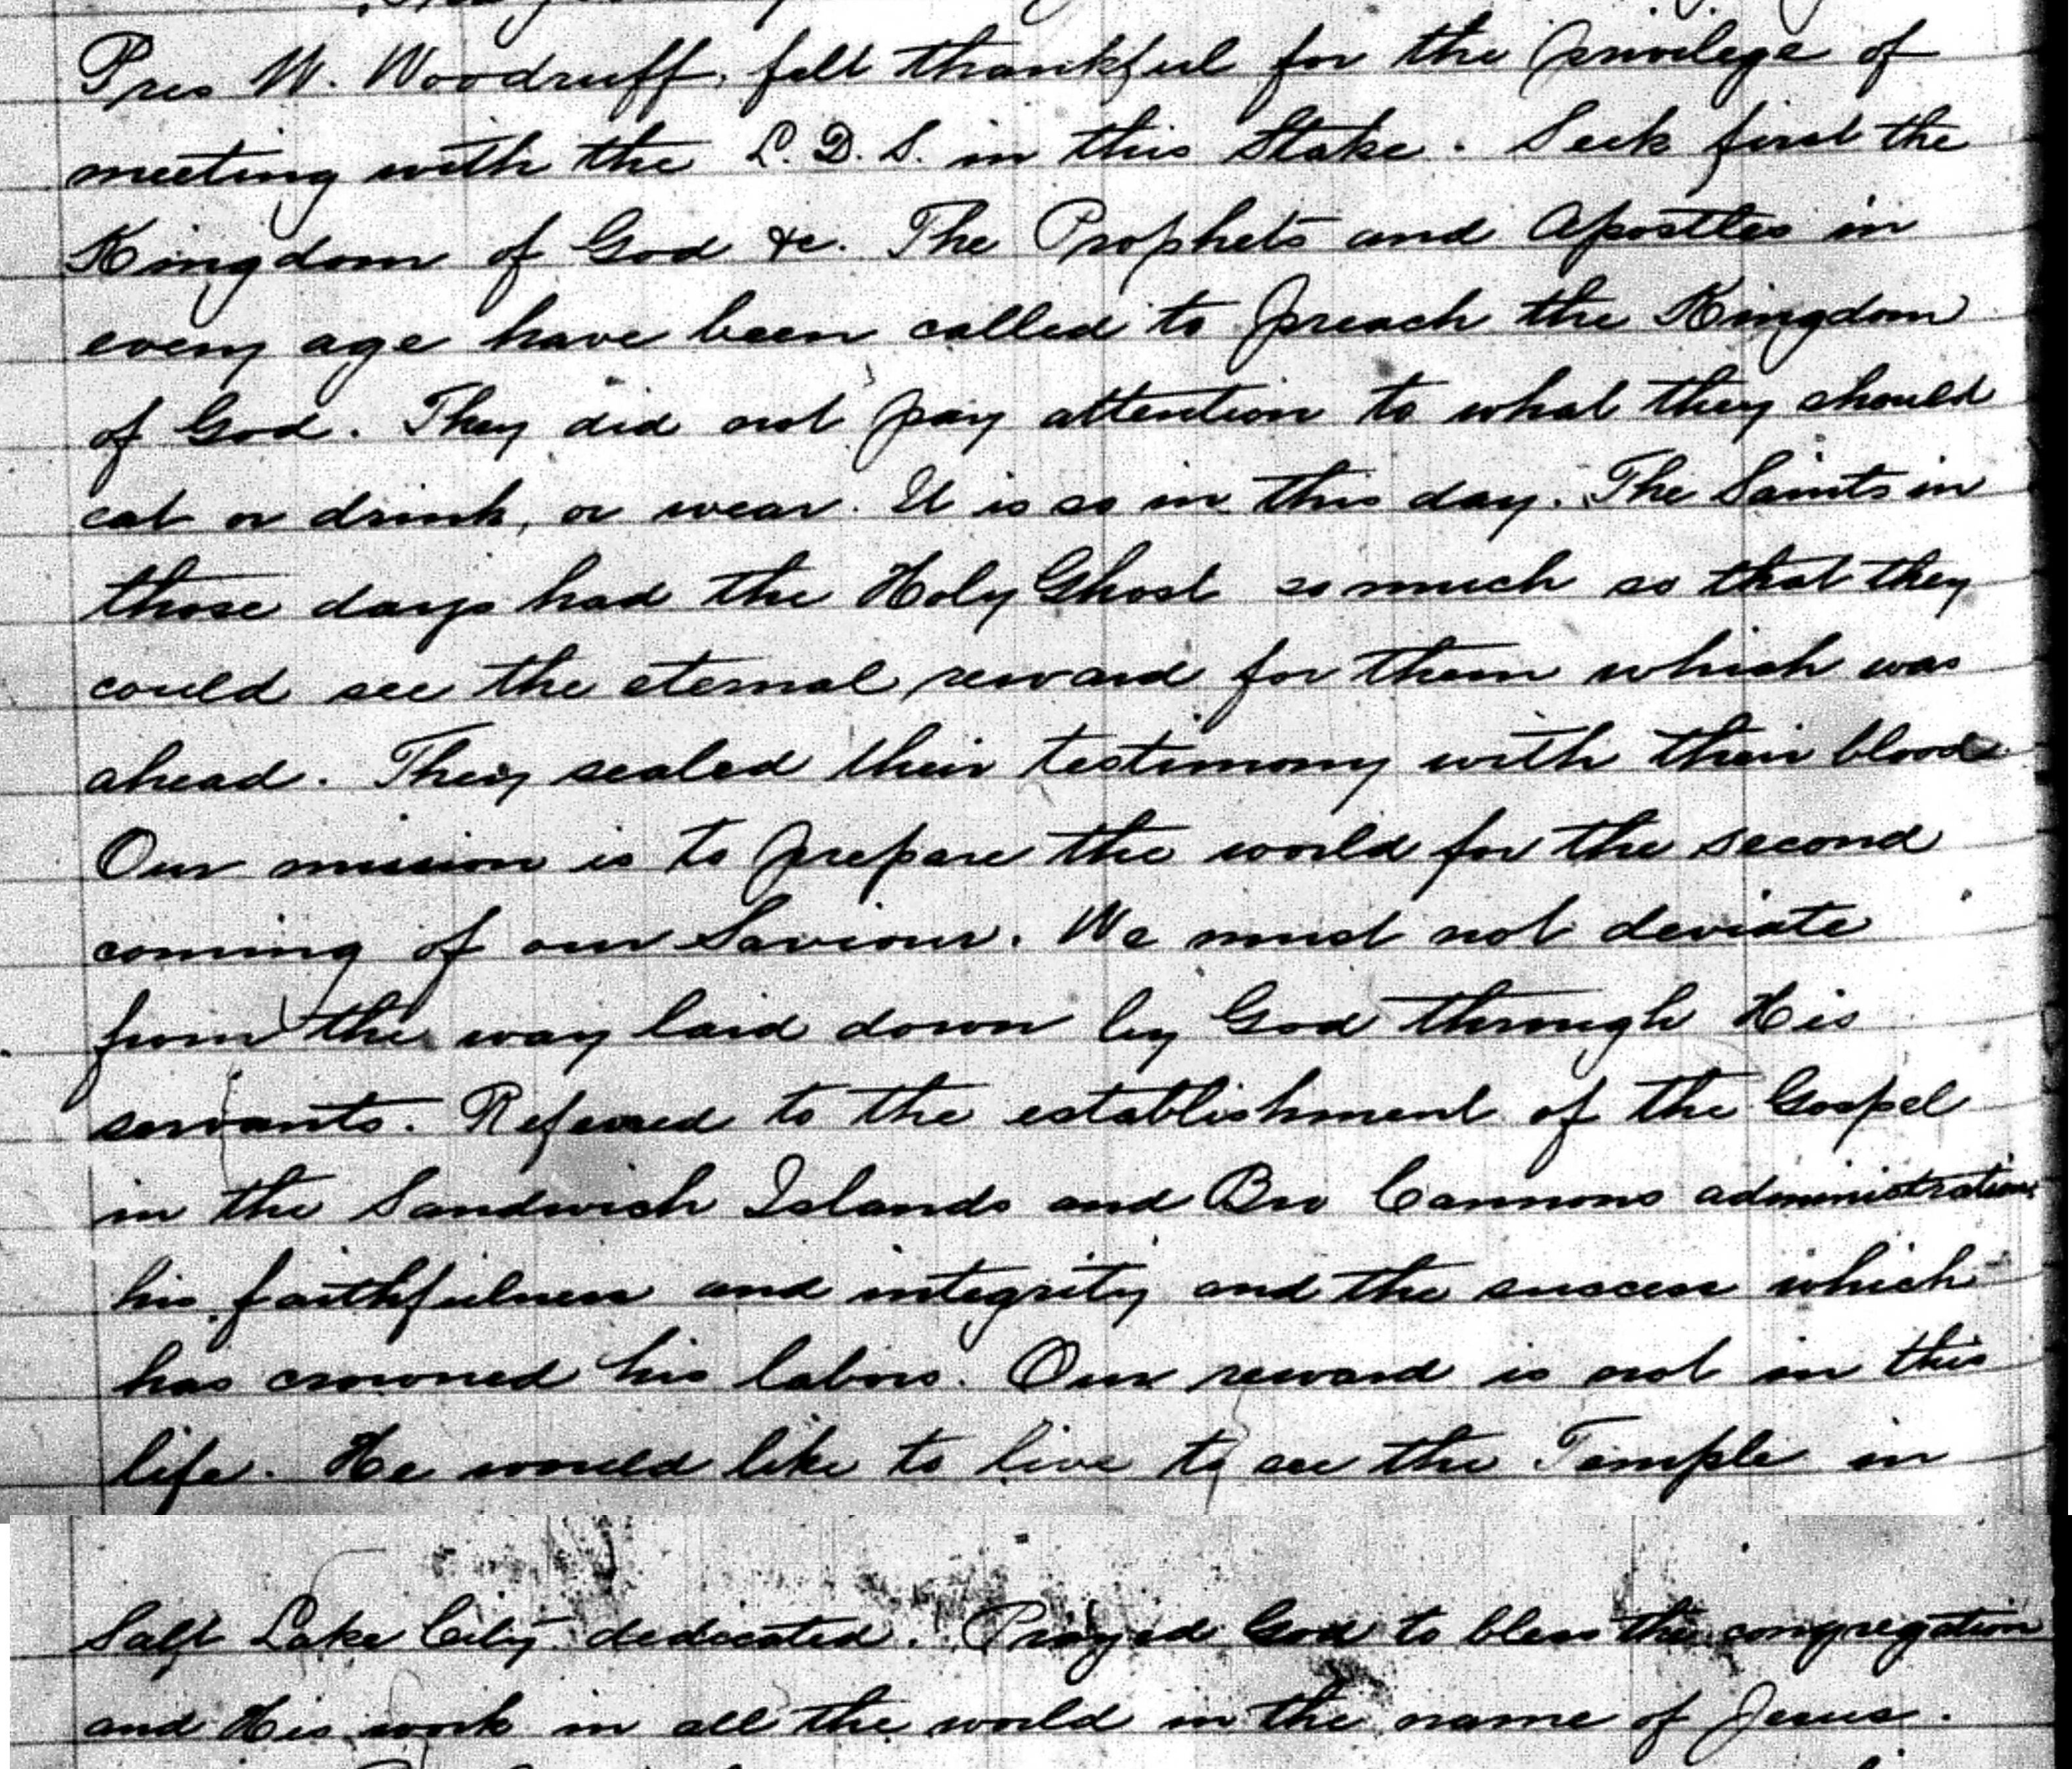 Pres W. Woodruff, felt thankful for the privilege of
meeting with the L.D.S. in this Stake. Seek first the
Kingdom of God &c. The Prophets and Apostles in
every age have been called to preach the Kingdom
of God. They did not pay attention to what they should
eat or drink, or wear. It is so in this day. The Saints in
those days had the Holy Ghost so much so that they
could see the eternal reward for them which was
ahead. They sealed their testimony with their blood.
Our mission is to prepare the world for the second
coming of our Saviour. We must not deviate
from the way laid down by God through His
servants. Refered to the establishment of the Gospel
in the Sandwich Islands and Bro Cannons administrations
his faithfulness and integrity and the success which
has crowned his labors. Our reward is not in this
life. He would like to live to see the Temple in
Salt Lake City dedicated. Prayed God to bless the congregation
and His work in all the world in the name of Jesus.